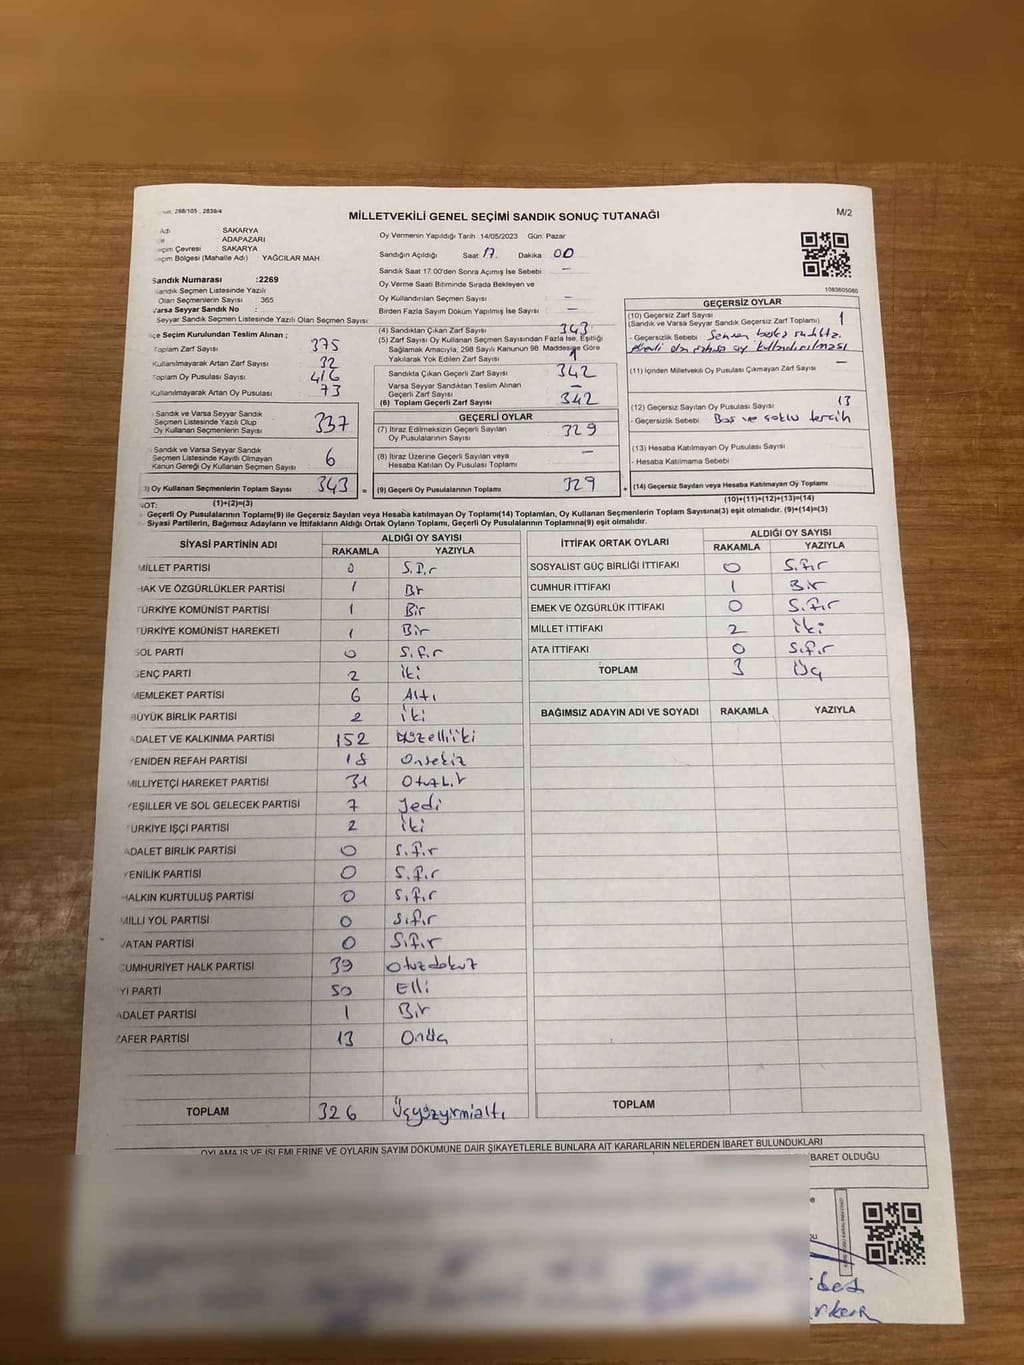 298/105 2839/4
MİLLETVEKİLİ GENEL SEÇİMİ SANDIK SONUÇ TUTANAĞI
M/2
Adı SAKARYA
ADAPAZARI
eçim Çevresi SAKARYA
eçim Bölgesi (Mahalle Adı) YAĞCILAR MAH
Sandık Numarası :2269
Sandık Seçmen Listesinde Yazılı
Olan Seçmenlerin Sayısı 365
Varsa Seyyar Sandık No :
Seyyar Sandık Seçmen Listesinde Yazılı Olan Seçmen Sayısı
Oy Vermenin Yapıldığı Tarih 14/05/2023 Gün: Pazar
Sandığın Açıldığı Saat 17. Dakika 00
Sandık Saat 17.00'den Sonra Açımış İse Sebebi -
Oy Verme Saati Bitiminde Sırada Bekleyen ve
Oy Kullandırılan Seçmen Sayısı -
Birden Fazla Sayım Döküm Yapılmış İse Sayısı -
1083605080
çe Seçim Kurulundan Teslim Alınan ;
Toplam Zarf Sayısı 375
Kullanılmayarak Artan Zarf Sayısı 32
Toplam Oy Pusulası Sayısı 416
Kullanılmayarak Artan Oy Pusulası 73
Sandık ve Varsa Seyyar Sandık
Seçmen Listesinde Yazılı Olup
Oy Kullanan Seçmenlerin Sayısı 337
Sandık ve Varsa Seyyar Sandık
Seçmen Listesinde Kayıtlı Olmayan
Kanun Gereği Oy Kullanan Seçmen Sayısı 6
3) Oy Kullanan Seçmenlerin Toplam Sayısı 343
(1)+(2)=(3)
(4) Sandıktan Çıkan Zarf Sayısı 343
(5) Zarf Sayısı Oy Kullanan Seçmen Sayısından Fazla İse, Eşitliği
Sağlamak Amacıyla, 298 Sayılı Kanunun 98. Maddesine Göre
Yakılarak Yok Edilen Zarf Sayısı 1
Sandıkta Çıkan Geçerli Zarf Sayısı 342
Varsa Seyyar Sandıktan Teslim Alınan
Geçerli Zarf Sayısı -
(6) Toplam Geçerli Zarf Sayısı 342
GEÇERLİ OYLAR
(7) İtiraz Edilmeksizin Geçerli Sayılan
Oy Pusulalarının Sayısı 329
(8) İtiraz Üzerine Geçerli Sayılan veya
Hesaba Katılan Oy Pusulası Toplamı -
= (9) Geçerli Oy Pusulalarının Toplamı 329 +
GEÇERSİZ OYLAR
(10) Geçersiz Zarf Sayısı
(Sandık ve Varsa Seyyar Sandık Geçersiz Zarf Toplamı) 1
- Geçersizlik Sebebi
(11) İçinden Milletvekili Oy Pusulası Çıkmayan Zarf Sayısı -
(12) Geçersiz Sayılan Oy Pusulası Sayısı 13
- Geçersizlik Sebebi Boş ve çoklu tercih
(13) Hesaba Katılmayan Oy Pusulası Sayısı
- Hesaba Katılmama Sebebi
(14) Geçersiz Sayılan veya Hesaba Katılmayan Oy Toplamı
(10)+(11)+(12)+(13)=(14)
NOT:
- Geçerli Oy Pusulalarının Toplamı(9) ile Geçersiz Sayılan veya Hesaba katılmayan Oy Toplamı(14) Toplamları, Oy Kullanan Seçmenlerin Toplam Sayısına(3) eşit olmalıdır. (9)+(14)=(3)
- Siyasi Partilerin, Bağımsız Adayların ve İttifakların Aldığı Ortak Oyların Toplamı, Geçerli Oy Pusulalarının Toplamına(9) eşit olmalıdır.
SİYASİ PARTİNİN ADI ALDIĞI OY SAYISI
RAKAMLA YAZIYLA
MİLLET PARTİSİ 0 Sıfır
HAK VE ÖZGÜRLÜKLER PARTİSİ 1 Bir
TÜRKİYE KOMÜNİST PARTİSİ 1 Bir
TÜRKİYE KOMÜNİST HAREKETİ 1 Bir
SOL PARTİ 0 Sıfır
GENÇ PARTİ 2 iki
MEMLEKET PARTİSİ 6 Altı
BÜYÜK BİRLİK PARTİSİ 2 iki
ADALET VE KALKINMA PARTİSİ 152 yüzelliiki
YENİDEN REFAH PARTİSİ 18 Onsekiz
MİLLİYETÇİ HAREKET PARTİSİ 31 Otuzbir
YEŞİLLER VE SOL GELECEK PARTİSİ 7 Yedi
TÜRKİYE İŞÇİ PARTİSİ 2 iki
ADALET BİRLİK PARTİSİ 0 Sıfır
YENİLİK PARTİSİ 0 Sıfır
HALKIN KURTULUŞ PARTİSİ 0 Sıfır
MİLLİ YOL PARTİSİ 0 Sıfır
VATAN PARTİSİ 0 Sıfır
CUMHURİYET HALK PARTİSİ 39 Otuzdokuz
İYİ PARTİ 50 Elli
ADALET PARTİSİ 1 Bir
ZAFER PARTİSİ 13 Onüç
TOPLAM 326 Üçyüzyirmialtı
İTTİFAK ORTAK OYLARI ALDIĞI OY SAYISI
RAKAMLA YAZIYLA
SOSYALİST GÜÇ BİRLİĞİ İTTİFAKI 0 Sıfır
CUMHUR İTTİFAKI 1 Bir
EMEK VE ÖZGÜRLÜK İTTİFAKI 0 Sıfır
MİLLET İTTİFAKI 2 iki
ATA İTTİFAKI 0 Sıfır
TOPLAM 3 Üç
BAĞIMSIZ ADAYIN ADI VE SOYADI RAKAMLA YAZIYLA
TOPLAM
OYLAMA İŞ VE İŞLEMLERİNE VE OYLARIN SAYIM DÖKÜMÜNE DAİR ŞİKAYETLERLE BUNLARA AİT KARARLARIN NELERDEN İBARET BULUNDUKLARI
BARET OLDUĞU